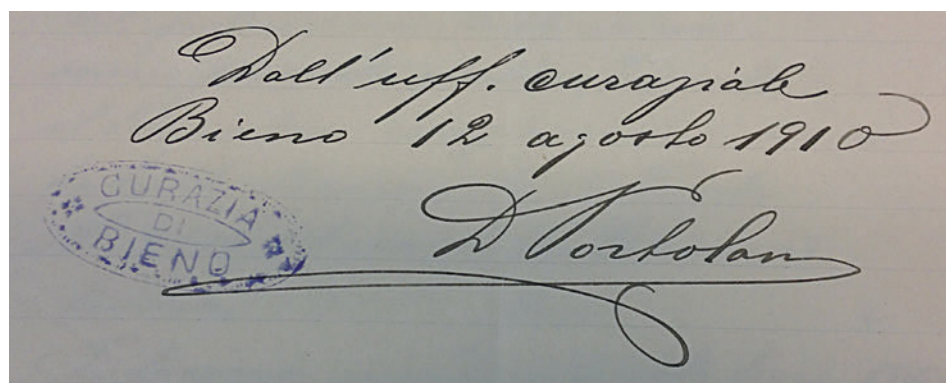 Dall'uff. curaziale
Bieno 12 agosto 1910
CURAZIA
DI
BIENO
D Portolan